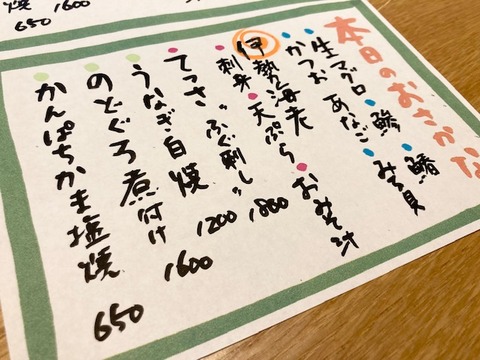 焼 650
1600
本日のおさかな
生マグロ ・鯵
・かつお ・あなご ・みる貝
伊勢海老
・刺身 ・天ぷら ・おみそ汁
・てっさ "ふぐ刺し" 1880
・うなぎ白焼 1200
・のどぐろ煮付け 1600
・かんぱちかま塩焼 650